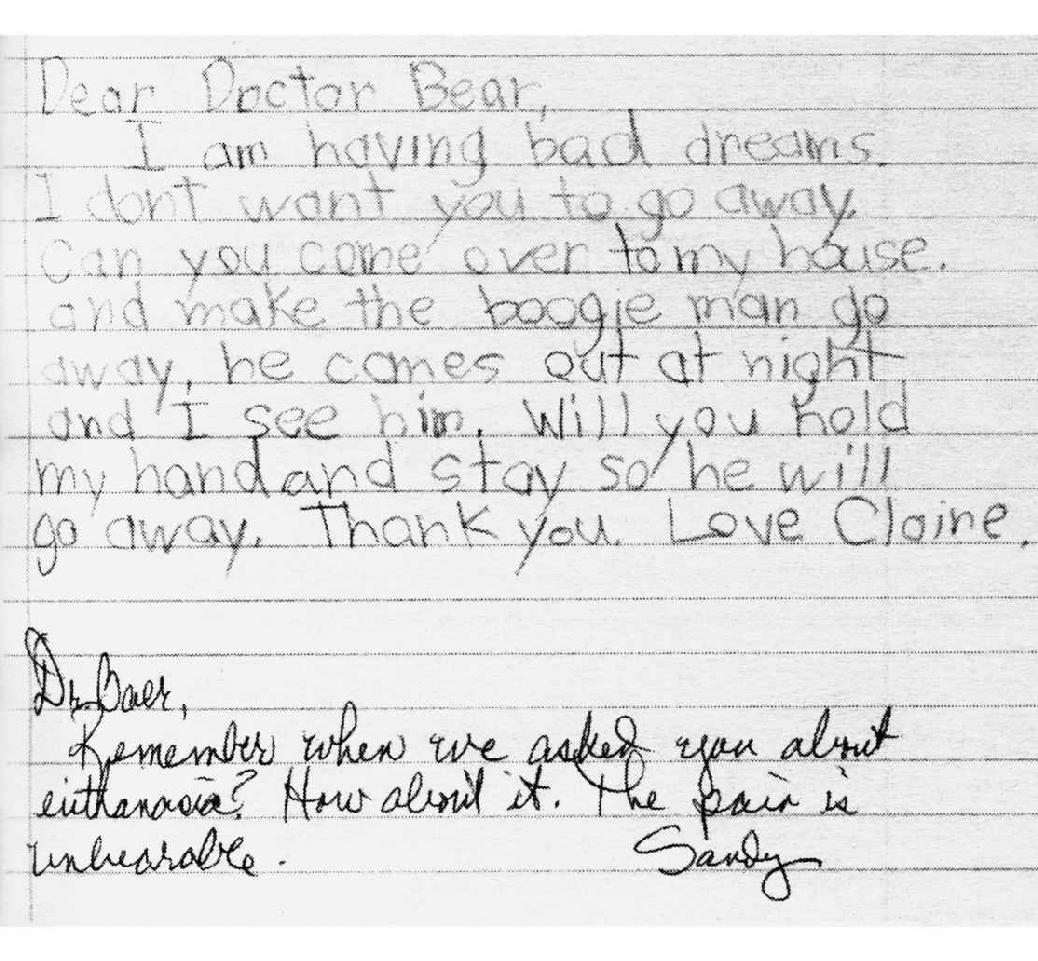 Dear Doctor Bear,
I am having bad dreams.
I dont want you to go away.
Can you come over to my house.
and make the boogie man go
away, he comes out at night
and I see him. Will you hold
my hand and stay so he will
go away. Thank you. Love Claire.
Dr. Baer,
Remember when we asked you about
euthanasia? How about it. The pain is
unbearable.
Sandy